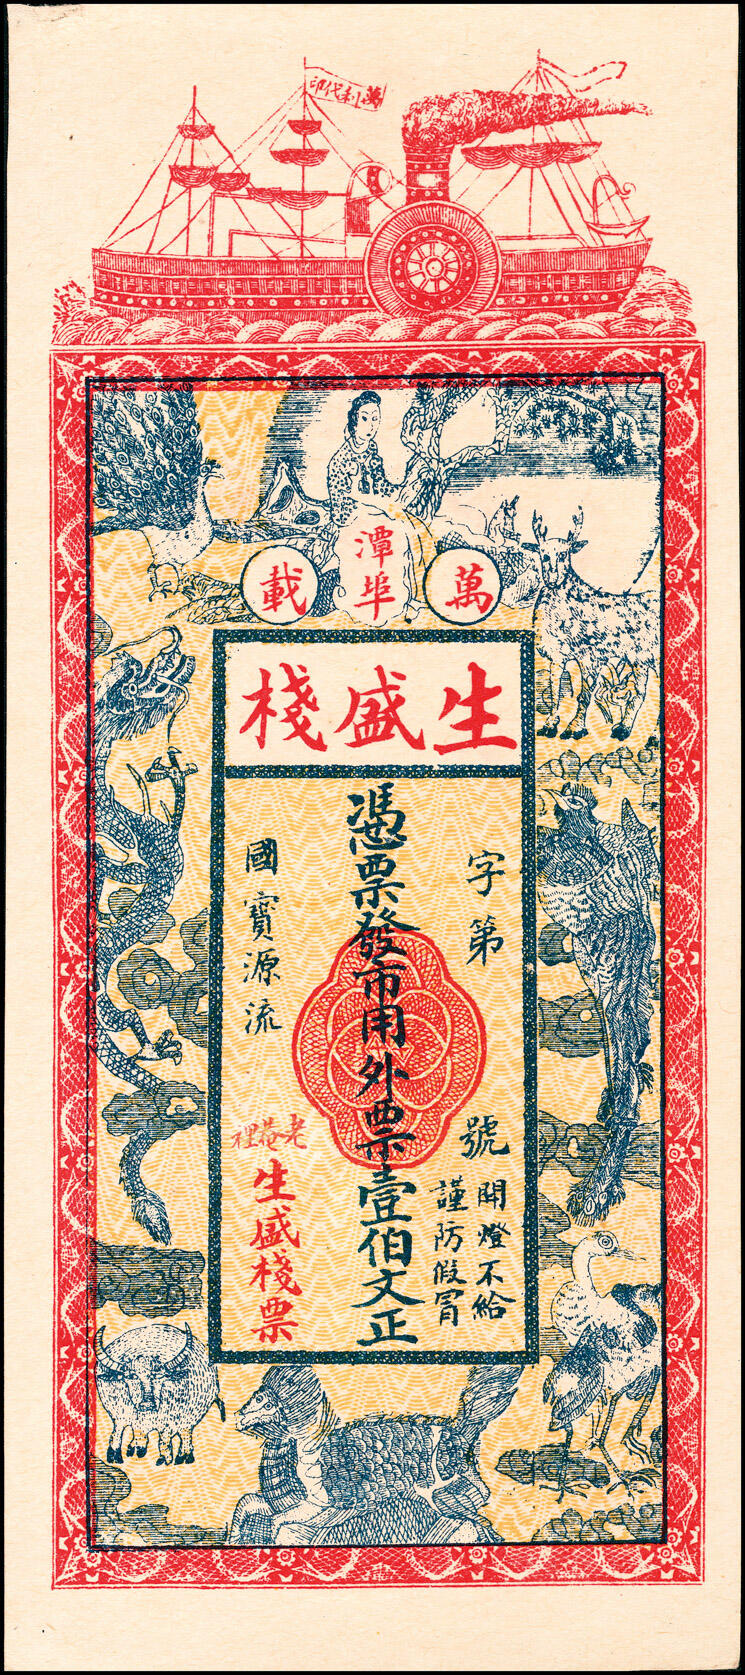 萬利代印
潭埠
萬載
生盛棧
字第
號
開燈不給
謹防假冒
憑票發市用外票壹伯文正
國寶源流
老巷裡
生盛棧票